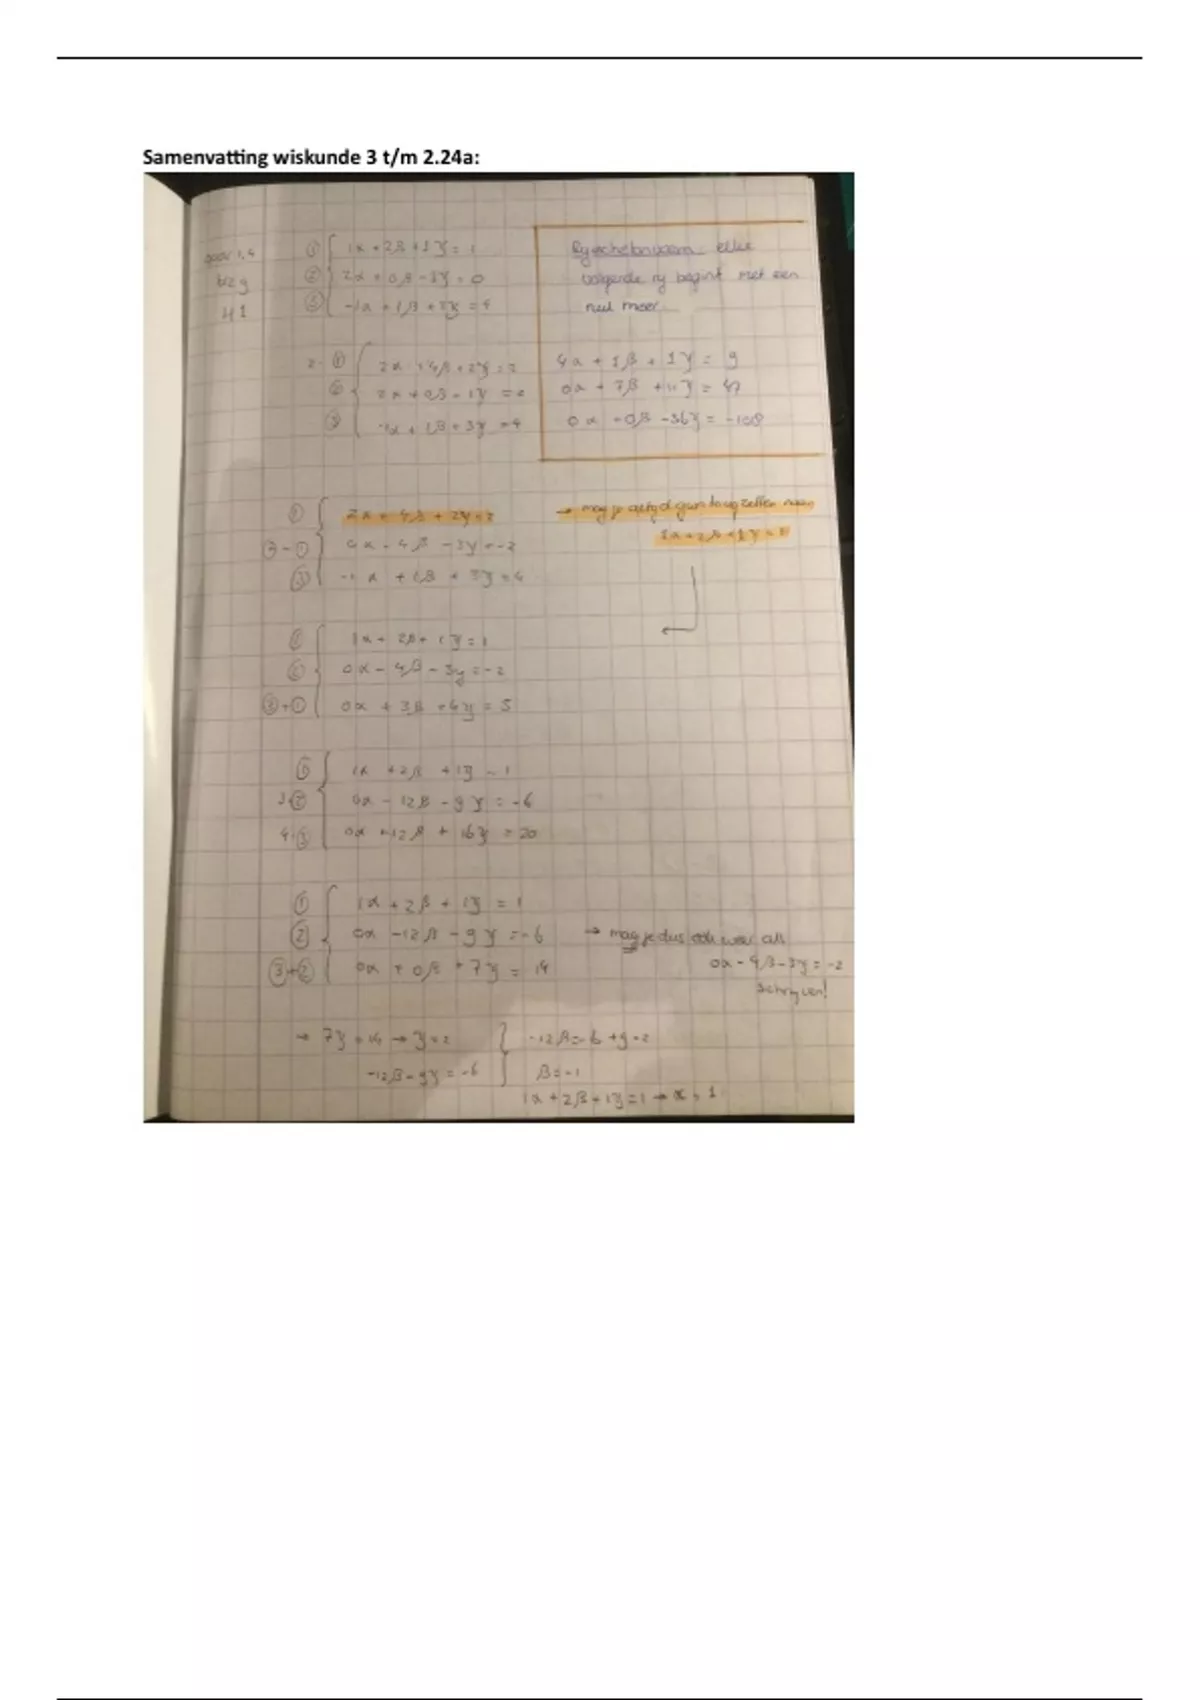 Samenvatting wiskunde 3 t/m 2.24a:
blz 9
H1
① 1α + 2β + 1γ = 1
② 2α + 0β - 1γ = 0
③ -1α + 1β + 3γ = 4
Rijechelonvorm elke
volgende rij begint met een
nul meer.
2·① 2α + 4β + 2γ = 2
② 2α + 0β - 1γ = 0
③ -1α + 1β + 3γ = 4
4α + 1β + 1γ = 9
0α + 7β + 11γ = 47
0α + 0β - 36γ = -108
① 2α + 4β + 2γ = 2
②-① 0α - 4β - 3γ = -2
③ -1α + 1β + 3γ = 4
→ mag je altijd gwn terugzetten naar
1α + 2β + 1γ = 1
① 1α + 2β + 1γ = 1
② 0α - 4β - 3γ = -2
③+① 0α + 3β + 4γ = 5
① 1α + 2β + 1γ = 1
3·② 0α - 12β - 9γ = -6
4·③ 0α + 12β + 16γ = 20
① 1α + 2β + 1γ = 1
② 0α - 12β - 9γ = -6
③+② 0α + 0β + 7γ = 14
→ mag je dus ook weer als
0α - 4β - 3γ = -2
schrijven!
→ 7γ = 14 → γ = 2
-12β - 9γ = -6
-12β = -6 + 9·2
β = -1
1α + 2β + 1γ = 1 → α = 1